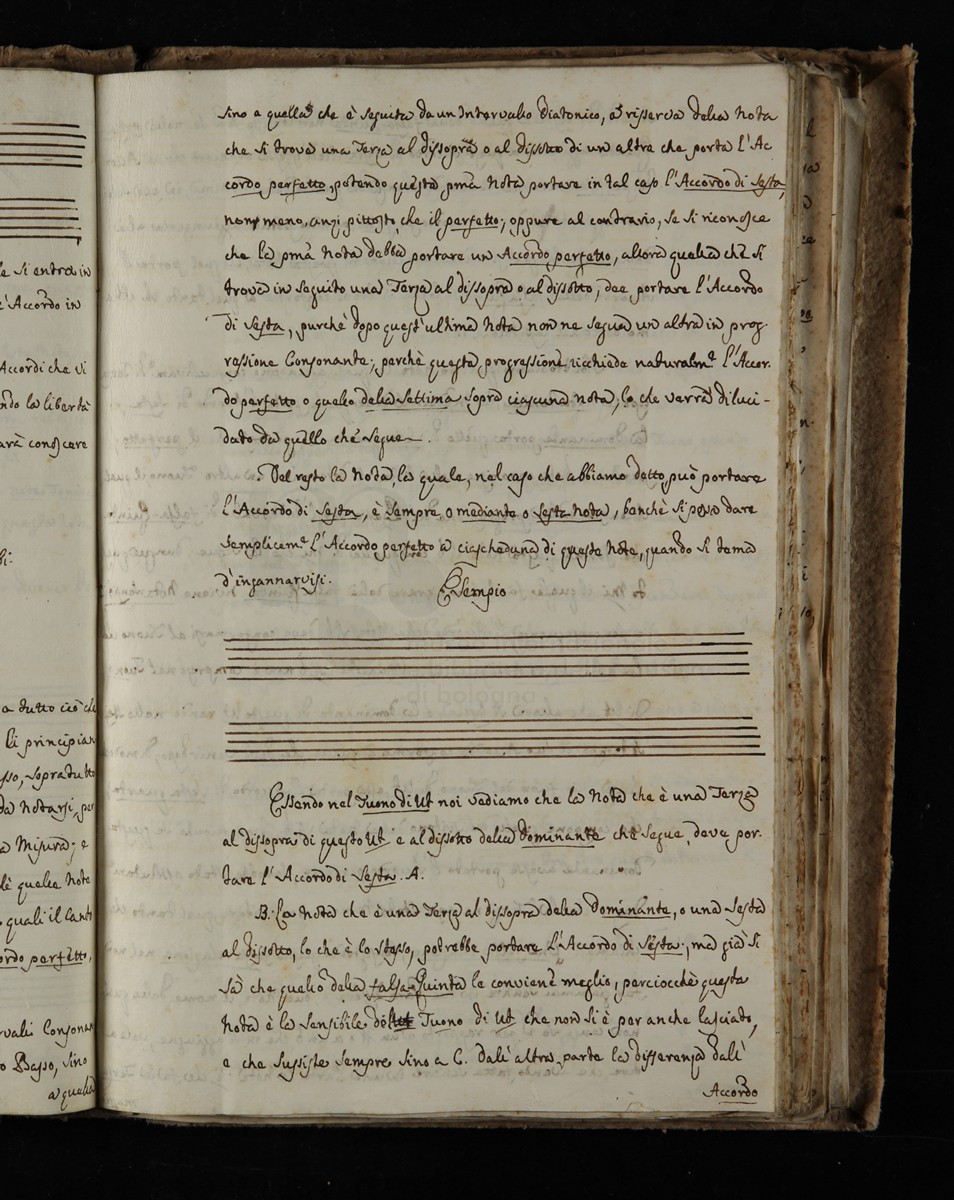 le si entra in
l'Accordo in
Accordi che vi
ndo la libertà
arà conoscere
bi.
a tutto ciò che
li principian
sso, sopra tutto
da notarsi, per
a Misura; e
lè quella note
quali il Canto
ordo perfetto,
rvali Consonan
o Basso, sino
a quella
sino a quella che è seguita da un Intervallo Diatonico, a risserva della Nota
che si trova una Terza al dissopra o al dissotto di un altra che porta l'Ac
cordo perfetto, potendo questa pma Nota portare in tal caso l'Accordo di Sesta,
non meno, anzi pittosto che il perfetto; oppure al contrario, se si riconosce
che la pma Nota debba portare un Accordo perfetto, allora quella che si
trova in seguito una Terza al dissopra o al dissotto, dee portare l'Accordo
di Sesta, purchè dopo quest'ultima Nota non ne segua un altra in prog-
ressione Consonante; perchè questa progressione ricchiede naturalme. l'Accor-
do perfetto o quello della Settima sopra ciascuna nota, lo che verrà diluci-
dato da quello che segue.
Del resto la Nota, la quale, nel caso che abbiamo detto, può portare
l'Accordo di Sesta, è sempre o mediante o Sesta Nota, benchè si possa dare
semplicem.e l'Accordo perfetto a ciascheduna di queste Note, quando si tema
d'ingannarvisi.
Esempio
Essendo nel Tuono di Ut noi vediamo che la Nota che è una Terza
al dissopra di questo Ut e al dissotto della Dominante che segue, deve por-
tare l'Accordo di Sesta. A.
B. La Nota che è una Terza al dissopra della Dominante, o una Sesta
al dissotto, lo che è lo stesso, potrebbe portare l'Accordo di Sesta; ma già si
sà che quello della falsa Quinta le conviene meglio, perciocchè questa
Nota è la sensibile del Tuono di Ut che non si è per anche lasciato,
e che sussiste sempre sino a C. dall'altra parte la differenza dall'
Accordo